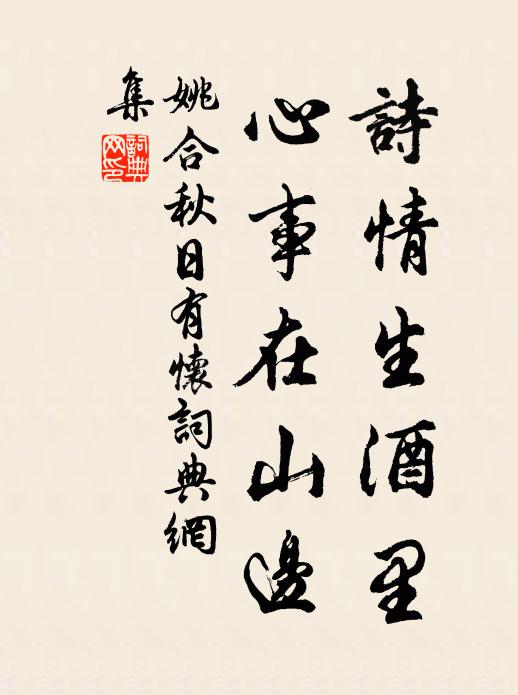 詩情生酒里
心事在山邊
姚合秋日有懷詞典網
集
詞典
网印